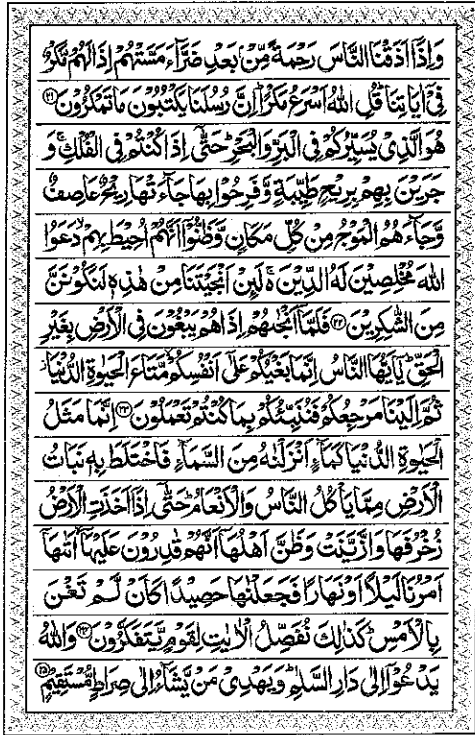 وَاِذَاۤ اَذَقۡنَا النَّاسَ رَحۡمَةً مِّنۡۢ بَعۡدِ ضَرَّآءَ مَسَّتۡهُمۡ اِذَا لَهُمۡ مَّكۡرٌ
فِىۡۤ اٰيَاتِنَا ؕ قُلِ اللّٰهُ اَسۡرَعُ مَكۡرًا ؕ اِنَّ رُسُلَنَا يَكۡتُبُوۡنَ مَا تَمۡكُرُوۡنَ ۲۱
هُوَ الَّذِىۡ يُسَيِّرُكُمۡ فِى الۡبَرِّ وَالۡبَحۡرِ ؕ حَتّٰۤى اِذَا كُنۡتُمۡ فِى الۡفُلۡكِ ۚ وَ
جَرَيۡنَ بِهِمۡ بِرِيۡحٍ طَيِّبَةٍ وَّفَرِحُوۡا بِهَا جَآءَتۡهَا رِيۡحٌ عَاصِفٌ
وَّجَآءَهُمُ الۡمَوۡجُ مِنۡ كُلِّ مَكَانٍ وَّظَنُّوۡۤا اَنَّهُمۡ اُحِيۡطَ بِهِمۡ ۙ دَعَوُا
اللّٰهَ مُخۡلِصِيۡنَ لَهُ الدِّيۡنَ ۚ لَئِنۡ اَنۡجَيۡتَنَا مِنۡ هٰذِهٖ لَنَكُوۡنَنَّ
مِنَ الشّٰكِرِيۡنَ ۲۲ فَلَمَّاۤ اَنۡجٰٮهُمۡ اِذَا هُمۡ يَبۡغُوۡنَ فِى الۡاَرۡضِ بِغَيۡرِ
الۡحَقِّ ؕ يٰۤاَيُّهَا النَّاسُ اِنَّمَا بَغۡيُكُمۡ عَلٰٓى اَنۡفُسِكُمۡ ۙ مَّتَاعَ الۡحَيٰوةِ الدُّنۡيَا
ثُمَّ اِلَيۡنَا مَرۡجِعُكُمۡ فَنُنَبِّئُكُمۡ بِمَا كُنۡتُمۡ تَعۡمَلُوۡنَ ۲۳ اِنَّمَا مَثَلُ
الۡحَيٰوةِ الدُّنۡيَا كَمَآءٍ اَنۡزَلۡنٰهُ مِنَ السَّمَآءِ فَاخۡتَلَطَ بِهٖ نَبَاتُ
الۡاَرۡضِ مِمَّا يَاۡكُلُ النَّاسُ وَالۡاَنۡعَامُ ؕ حَتّٰۤى اِذَاۤ اَخَذَتِ الۡاَرۡضُ
زُخۡرُفَهَا وَازَّيَّنَتۡ وَظَنَّ اَهۡلُهَاۤ اَنَّهُمۡ قٰدِرُوۡنَ عَلَيۡهَاۤ ۙ اَتٰٮهَاۤ
اَمۡرُنَا لَيۡلًا اَوۡ نَهَارًا فَجَعَلۡنٰهَا حَصِيۡدًا كَاَنۡ لَّمۡ تَغۡنَ
بِالۡاَمۡسِ ؕ كَذٰلِكَ نُفَصِّلُ الۡاٰيٰتِ لِقَوۡمٍ يَّتَفَكَّرُوۡنَ ۲۴ وَاللّٰهُ
يَدۡعُوۡۤا اِلٰى دَارِ السَّلٰمِ ؕ وَيَهۡدِىۡ مَنۡ يَّشَآءُ اِلٰى صِرَاطٍ مُّسۡتَقِيۡمٍ ۲۵